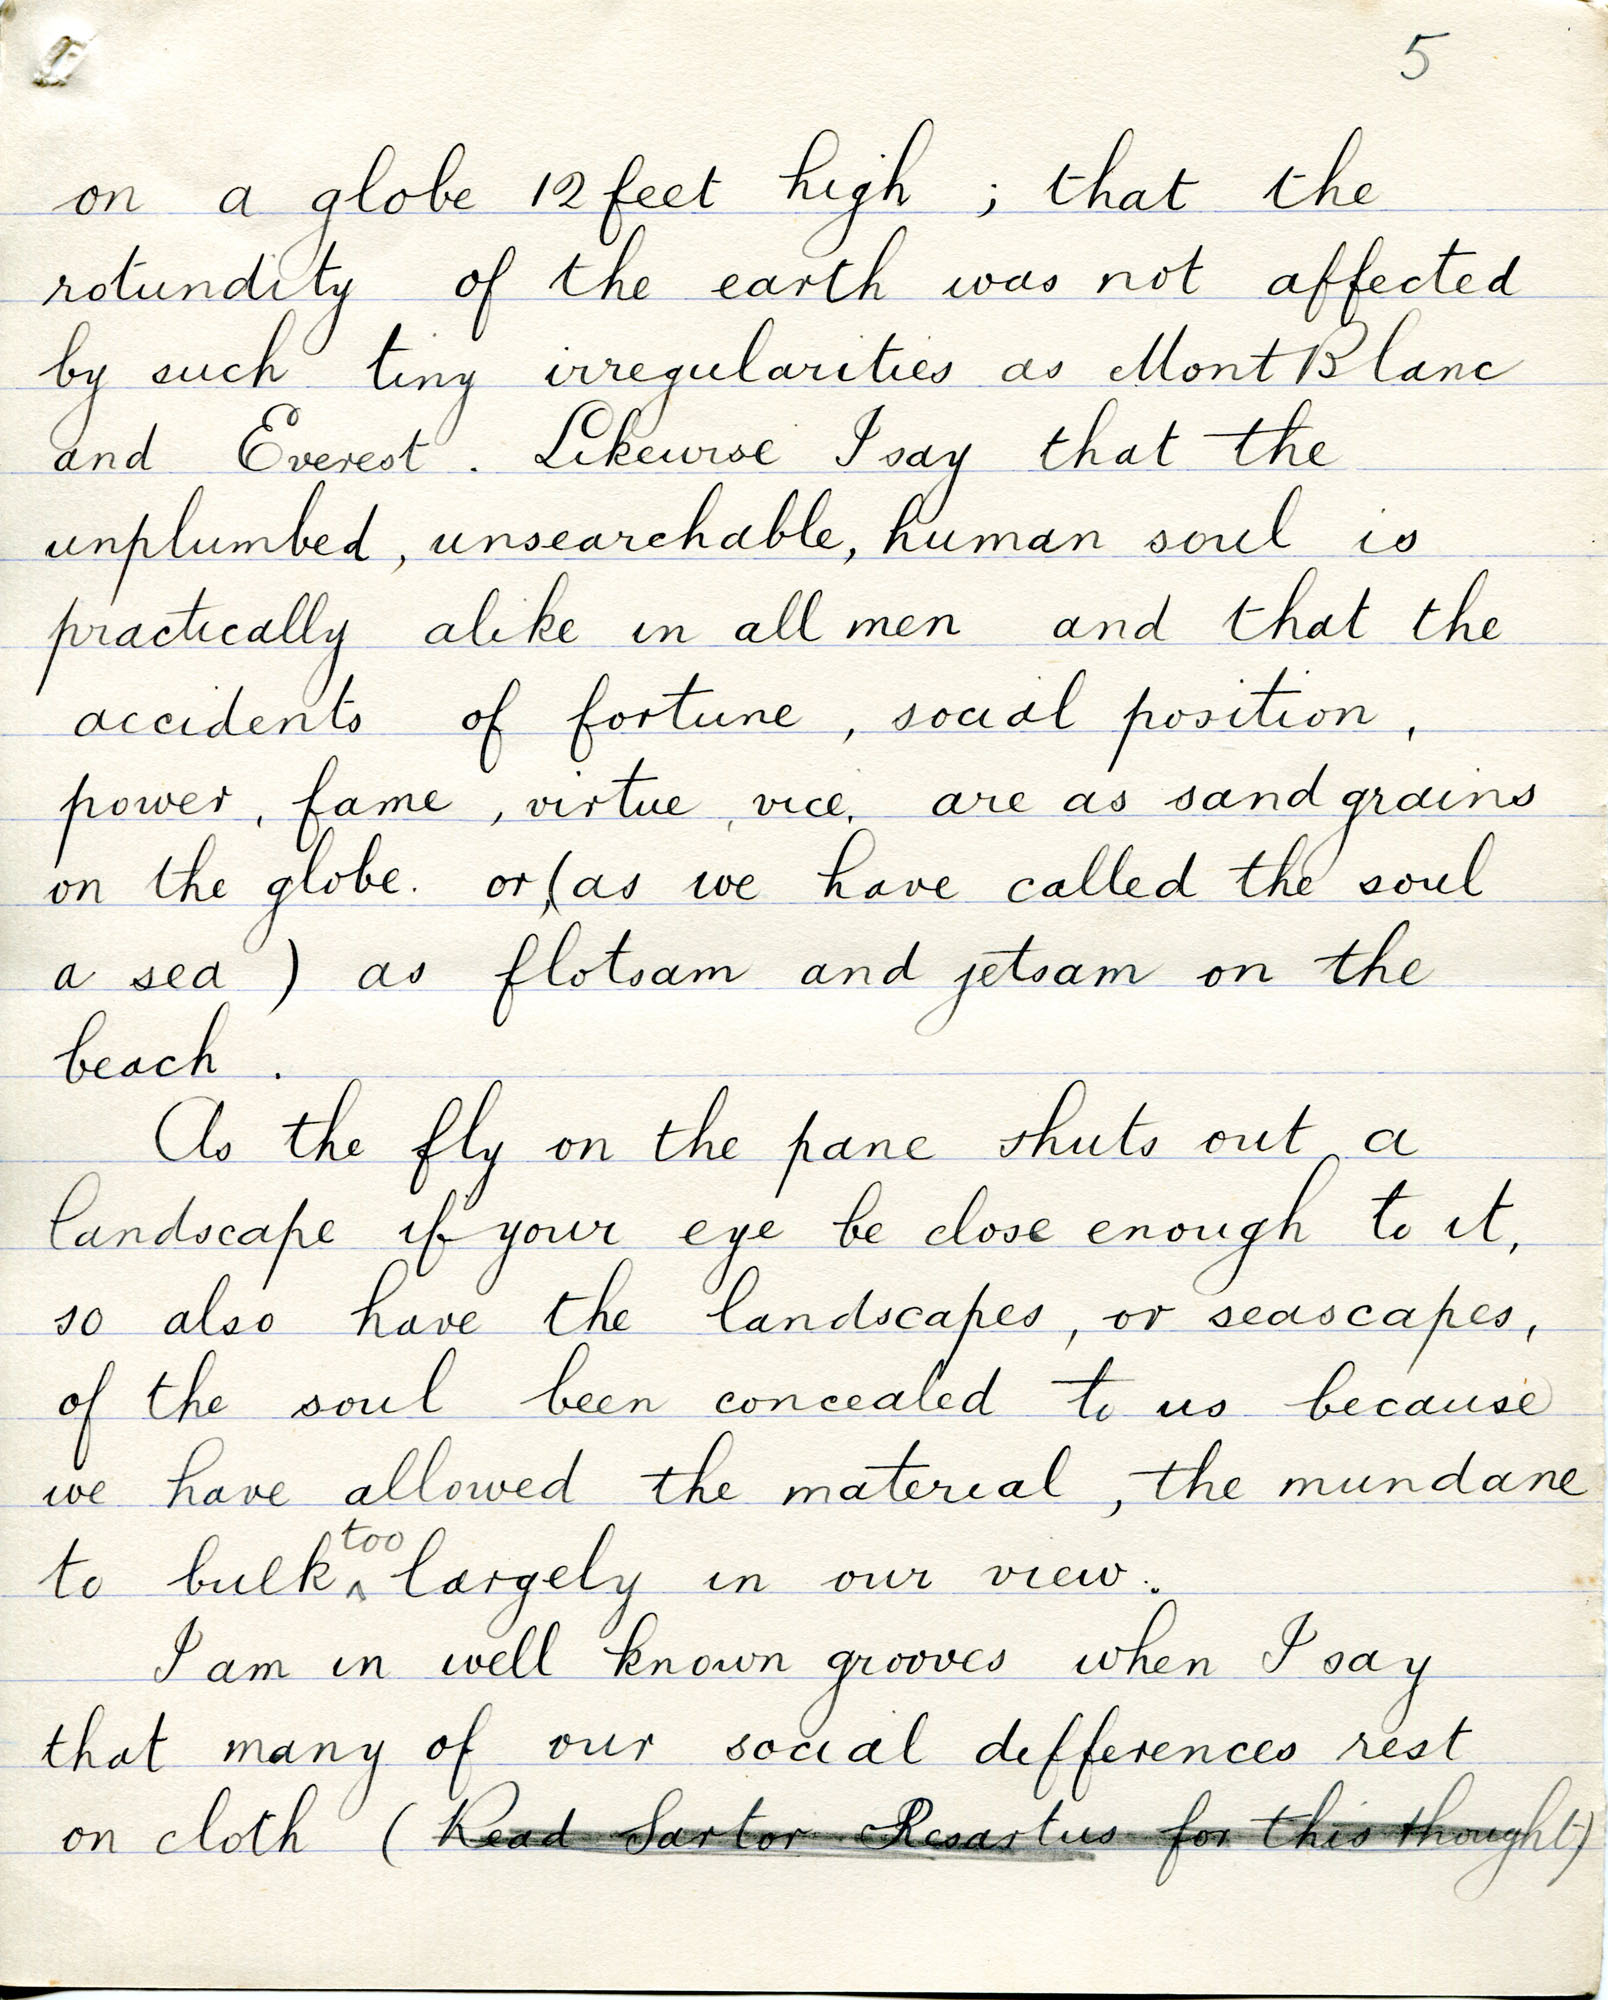 5
on a globe 12 feet high ; that the
rotundity of the earth was not affected
by such tiny irregularities as Mont Blanc
and Everest . Likewise I say that the
unplumbed , unsearchable, human soul is
practically alike in all men and that the
accidents of fortune , social position ,
power , fame , virtue , vice, are as sand grains
on the globe. or, (as we have called the soul
a sea ) as flotsam and jetsam on the
beach .
As the fly on the pane shuts out a
landscape if your eye be close enough to it,
so also have the landscapes, or seascapes,
of the soul been concealed to us because
we have allowed the material , the mundane
to bulk too largely in our view .
I am in well known grooves when I say
that many of our social differences rest
on cloth ( Read Sartor Resartus for this thought)